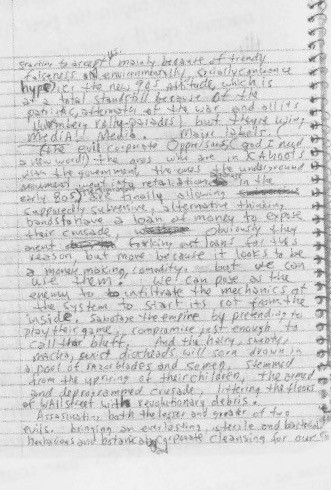 starting to accept us. mainly because of trendy
falseness in environmentally, socially conscience
hype. ie: the new 90's attitude, which is
at a total standstill because of the
patriotic aftermath of the war and all its
(Nuremberg rally-parades) but they're using
MEDIA! Media. Major labels. (
(The evil corporate Oppressors (god I need
a new word!) the ones who are in KAhoots
with the government, the ones the underground
movement retaliation in the
early 80s) are finally allowing
supposedly subversive, alternative thinking
bands to have a loan of money to expose
their crusade, obviously they
arent forking out loans for this
reason, but more because it looks to be
a money making, comodity, but we can
use them! We can pose as the
enemy to infiltrate the mechanics of
the system to start its rot from the
inside. Sabotage the empire by pretending to
play their game, compromise just enough to
call their bluff. And the hairy, sweaty,
macho, sexist dickheads will soon drown in
a pool of razorblades and semen, stemmed
from the uprising of their children, the armed
and deprogrammed crusade, littering the floors
of WAll street with revolutionary debris.
Assassinating both the lesser and greater of two
evils. bringing an everlasting, sterile and bacterial
herbacious and botanical corporate cleansing for our